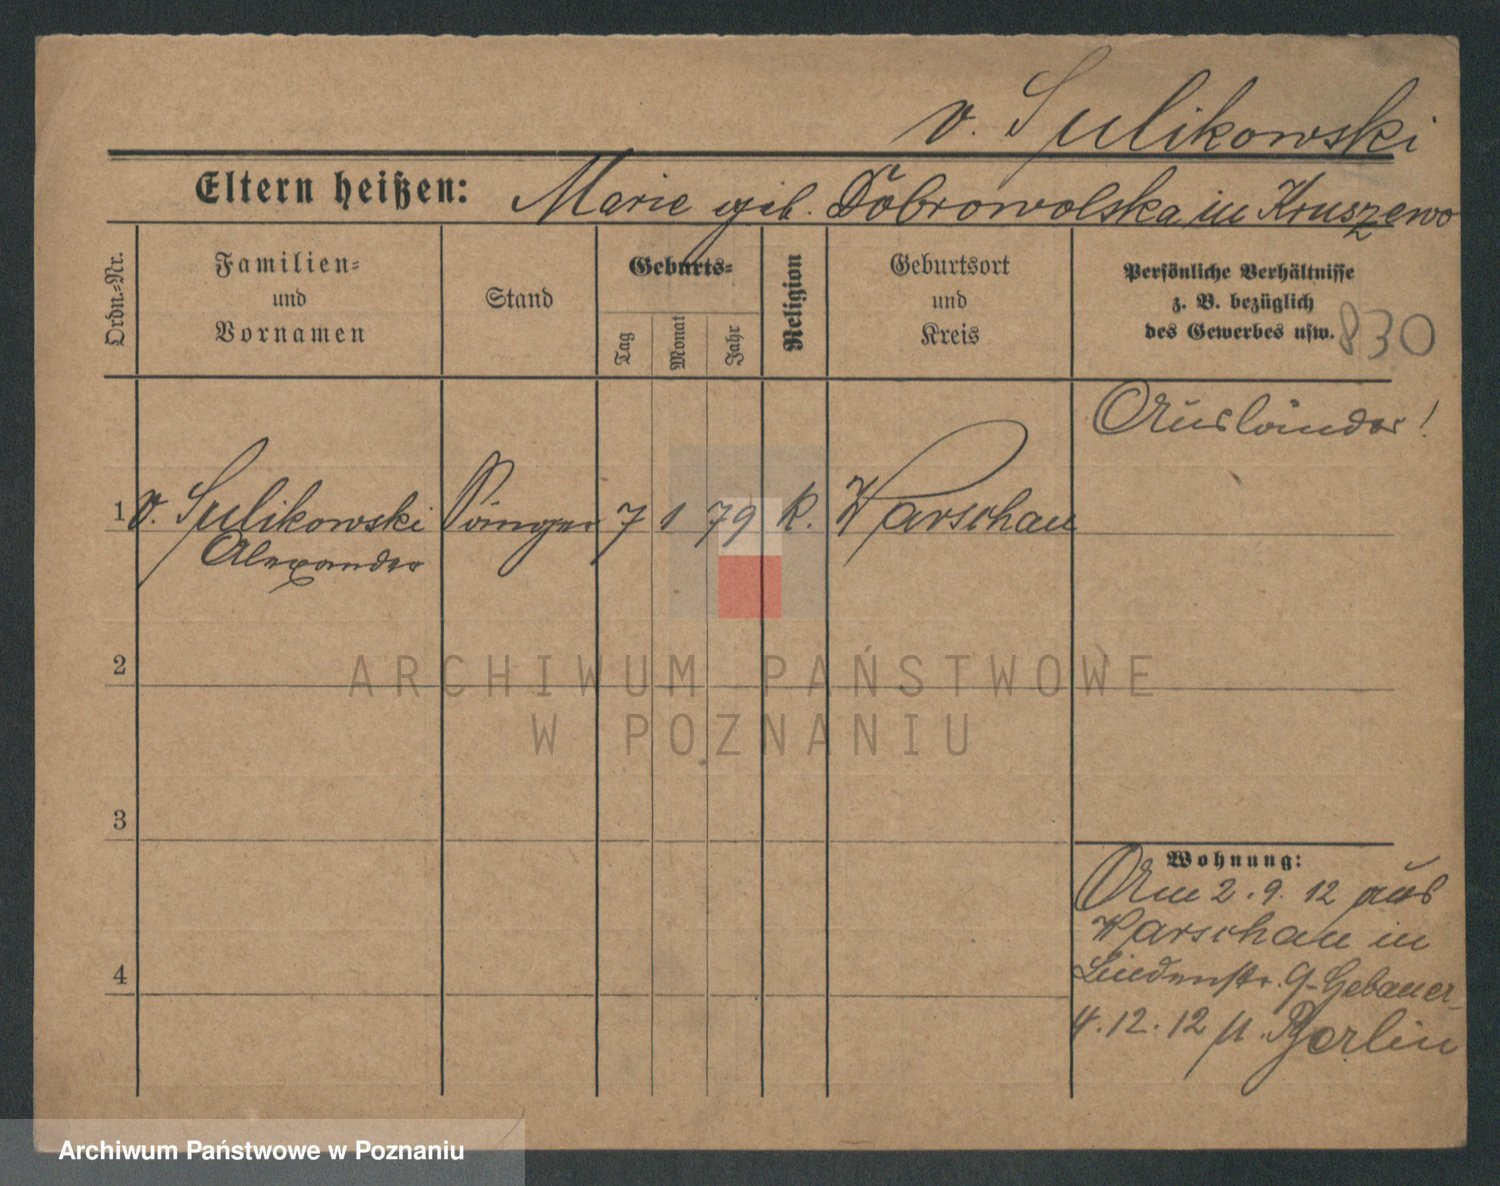 v. Sulikowski
Eltern heißen: Marie geb. Dobrowolska in Kruszewo
Ordn.-Nr.
Familien-
und
Vornamen
Stand
Geburts-
Tag
Monat
Jahr
Religion
Geburtsort
und
Kreis
Persönliche Verhältnisse
z. B. bezüglich
des Gewerbes usw.
830
Ausländer!
1 v. Sulikowski Sänger 7 1 79 k. Warschau
Alexander
2
3
4
Wohnung:
Am 2.9.12 aus
Warschau in
Lindenstr. 9 Gebauer
4.12.12 n. Berlin
ARCHIWUM PAŃSTWOWE
W POZNANIU
Archiwum Państwowe w Poznaniu